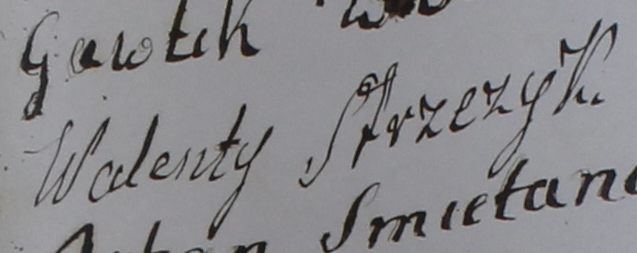 Gawlik
Walenty Strzezyk.
Smietana